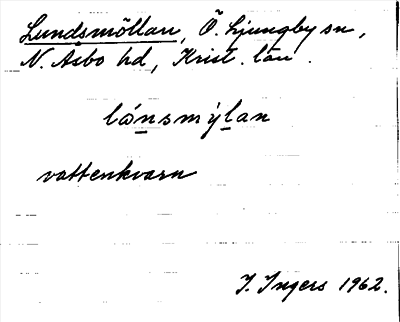 Lundsmöllan, Ö. Ljungby sn,
N. Åsbo hd, Krist. län.
lánsmýlan
vattenkvarn
I. Ingers 1962.